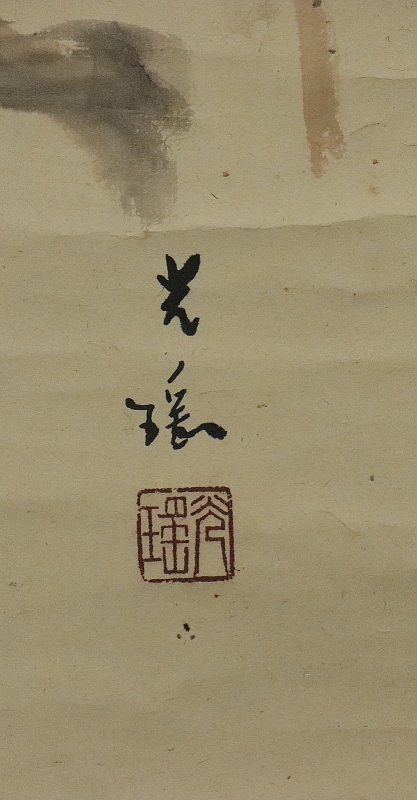 光
瑤
光瑤